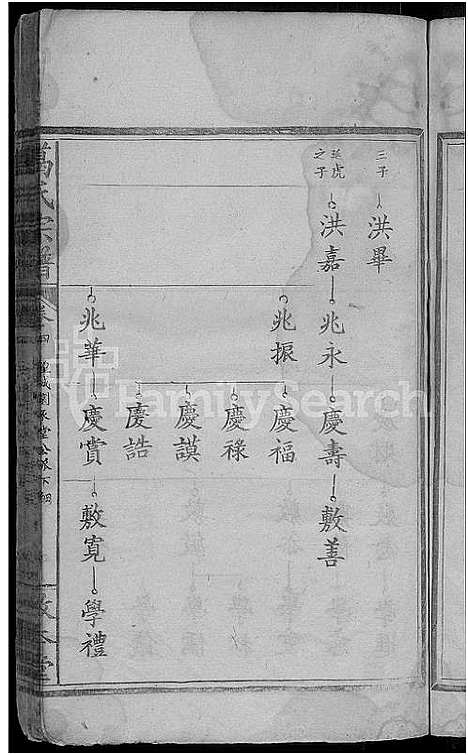 二子 洪畢
廷虎之子 洪嘉 兆永 慶壽 敷善
兆振 慶福
慶祿
慶謨
慶誥
兆華 慶賞 敷寬 學禮
萬氏宗譜
卷四
敦本堂
FamilySearch